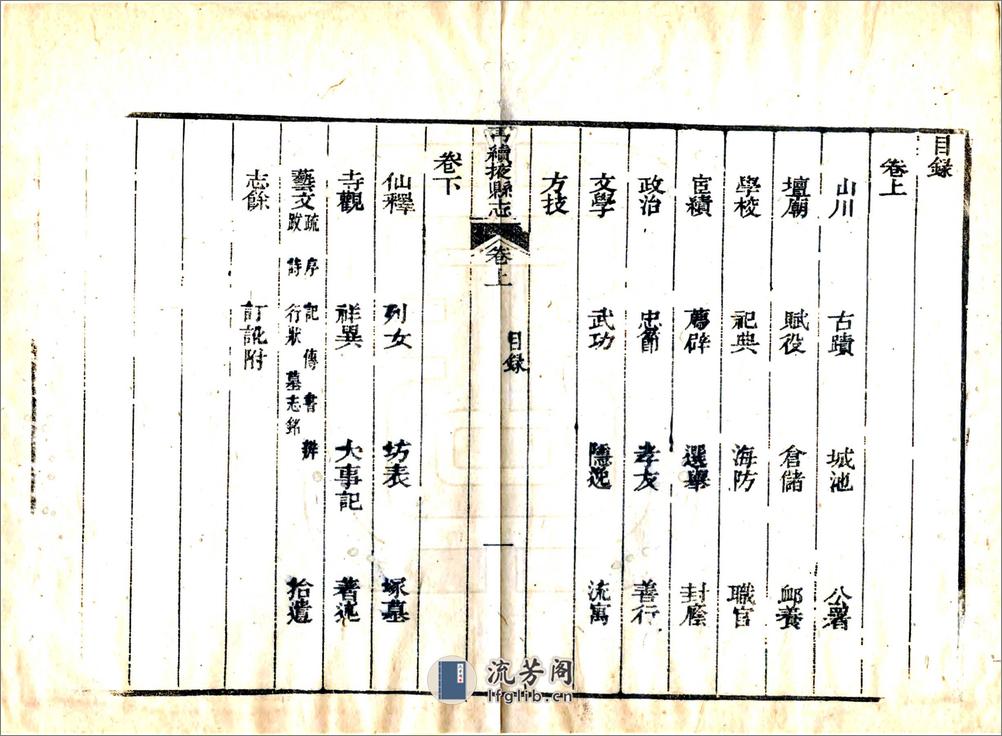 目録
卷上
山川 古蹟 城池 公署
壇廟 賦役 倉儲 卹養
學校 祀典 海防 職官
宦績 薦辟 選舉 封廕
政治 忠節 孝友 善行
文學 武功 隱逸 流寓
方技
再續掖縣志 卷上 目録 一
卷下
仙釋 列女 坊表 塚墓
寺觀 祥異 大事記 著述
藝文 疏 序 記 傳 書 辨 跋 詩 行狀 墓志銘 拾遺
志餘 訂訛附
流芳阁
lfglib.cn